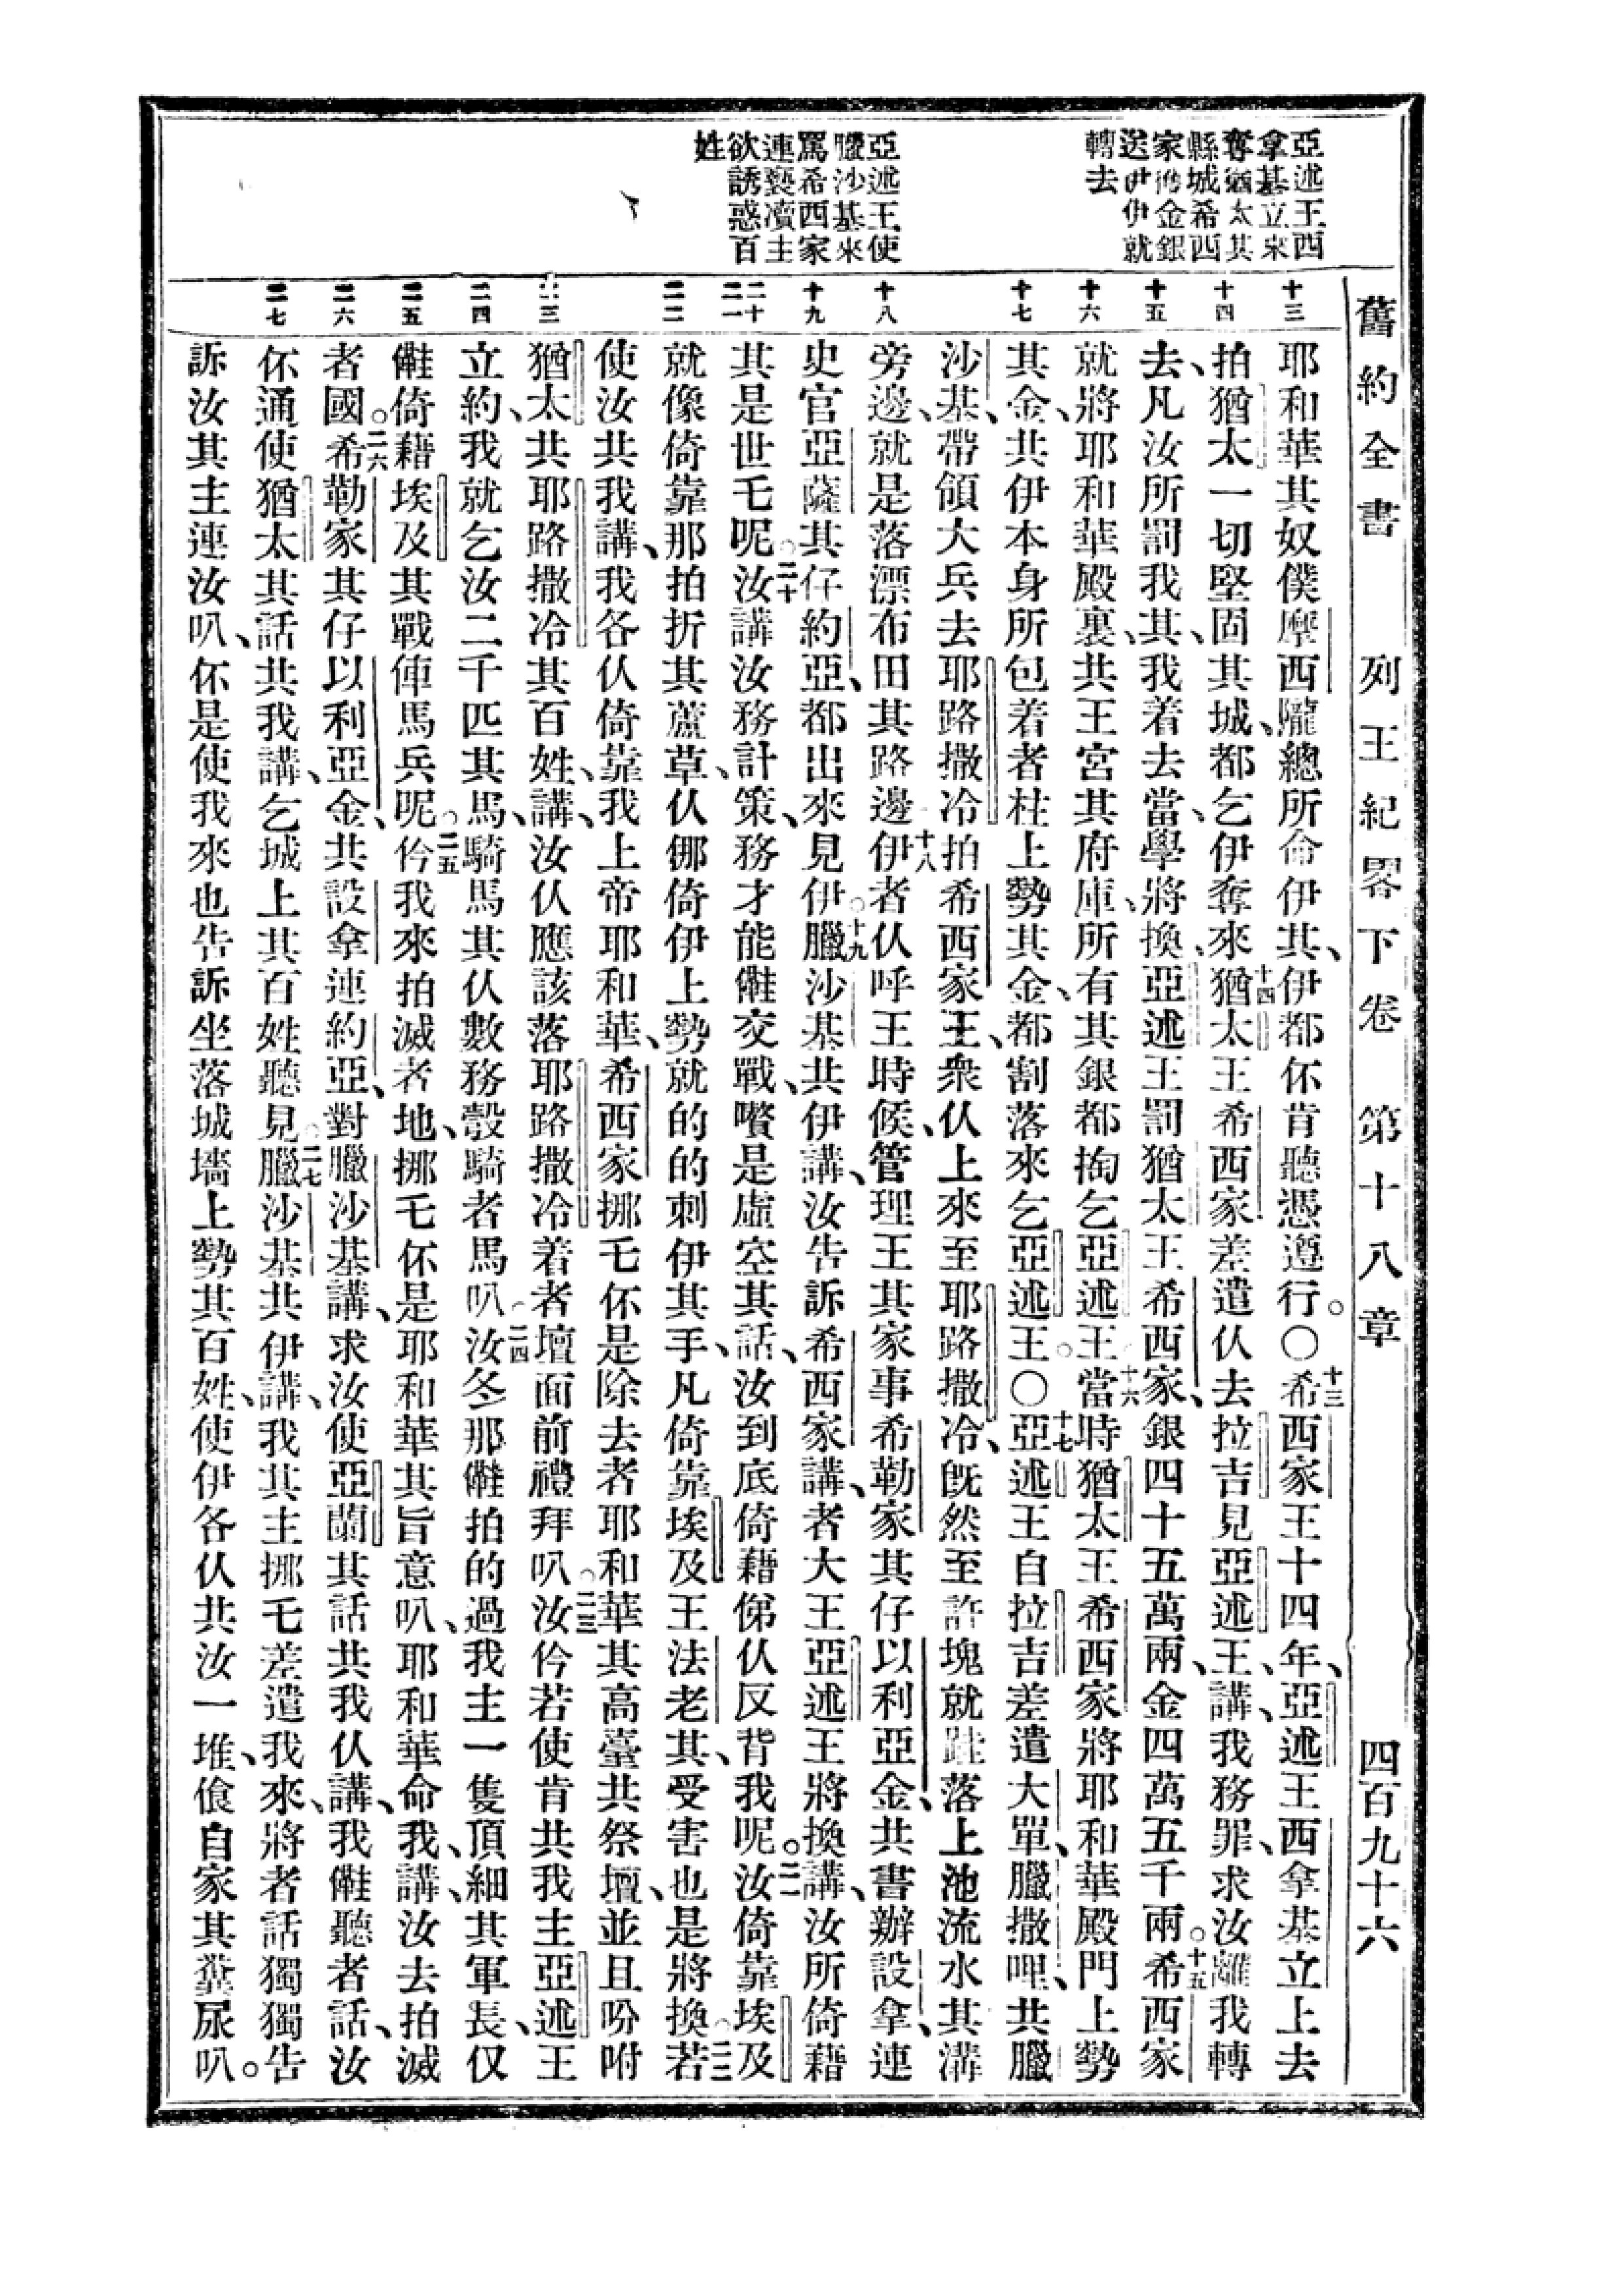 舊約全書 列王紀畧下卷 第十八章 四百九十六
亞述王西
拿基立來
奪猶太其
縣城希西
家將金銀
送伊伊就
轉去
亞述王使
臘沙基來
罵希西家
連褻瀆主
欲誘惑百
姓
十三 十四 十五 十六 十七 十八 十九 二十 二一 二二 二三 二四 二五 二六 二七
耶和華其奴僕摩西隴總所命伊其、伊都伓肯聽憑遵行。〇十三希西家王十四年、亞述王西拿基立上去
拍猶太一切堅固其城、都乞伊奪來十四猶太王希西家差遣仈去拉吉見亞述王、講、我務罪、求汝離我轉
去、凡汝所罰我其、我着去當、學將換、亞述王罰猶太王希西家、銀四十五萬兩、金四萬五千兩。十五希西家
就將耶和華殿裏、共王宮其府庫、所有其銀都掏乞亞述王。十六當時猶太王希西家將耶和華殿門上勢
其金、共伊本身所包着者柱上勢其金、都割落來乞亞述王。〇十七亞述王自拉吉差遣大單、臘撒哩、共臘
沙基、帶領大兵去耶路撒冷拍希西家王、衆仈上來至耶路撒冷、旣然至許塊就跬落上池流水其溝
旁邊、就是落漂布田其路邊十八伊者仈呼王時候、管理王其家事希勒家其仔以利亞金、共書辦設拿、連
史官亞薩其仔約亞、都出來見伊。十九臘沙基共伊講、汝告訴希西家講、者大王亞述王將換講、汝所倚藉
其是世乇呢。二十汝講汝務計策、務才能𠍽交戰、嚽是虛空其話、汝到底倚藉俤仈反背我呢。二一汝倚靠埃及
就像倚靠那拍折其蘆草、仈倻倚伊上勢就的的刺伊其手、凡倚靠埃及王法老其、受害也是將換。二二若
使汝共我講、我各仈倚靠我上帝耶和華、希西家挪乇伓是除去者耶和華其高臺共祭壇、並且吩咐
猶太共耶路撒冷其百姓、講、汝仈應該落耶路撒冷着者壇面前禮拜叭。二三汝仱若使肯共我主亞述王
立約、我就乞汝二千匹其馬、騎馬其仈數務彀騎者馬叭。二四汝冬那𠍽拍的過我主一隻頂細其軍長、仅
𠍽倚藉埃及其戰俥馬兵呢。二五仱我來拍滅者地、挪乇伓是耶和華其旨意叭、耶和華命我、講、汝去拍滅
者國。二六希勒家其仔以利亞金、共設拿連約亞、對臘沙基講、求汝使亞蘭其話共我仈講、我𠍽聽者話、汝
伓通使猶太其話共我講、乞城上其百姓聽見。二七臘沙基共伊講、我其主挪乇差遣我來、將者話獨獨告
訴汝其主連汝叭、伓是使我來也告訴坐落城墻上勢其百姓、使伊各仈共汝一堆、飡自家其糞尿叭。